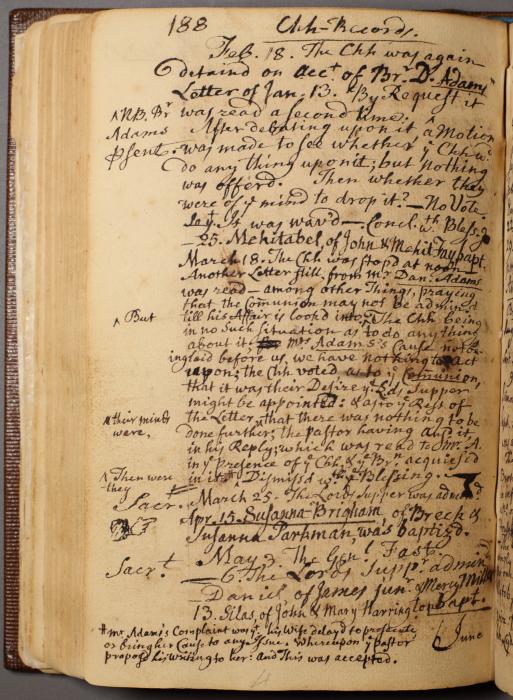 188 Chh-Records.
Feb. 18. The Chh was again
detaind on acct of Br. D. Adams's
Letter of Jan. 13. By Request it
was read a second time.
^NB. Br
Adams
psent.
After debating upon it a Motion
was made to see whether ye Chh wd
do any thing upon it; but nothing
was offerd. Then whether they
were of ye mind to drop it? — No Vote.
It was wav'd —. Concl. wth Blessg
— 25. Mehitabel, of John & Mehit. Fay bapt.
March 18. The Chh was stopd at noon
Another Letter still, from mr Dan: Adams
was read — among other Things, praying
that the Comunion may not be admind
till his Affair is look'd into. ^ The Chh being
^ But
in no such Situation as to do any thing
about it; mr Adams's Cause not be-
ing laid before us, we have nothing to act
upon; the Chh voted, as to ye Comunion,
that it was their Desire ye Lds Supper
might be appointed: & as to ye Rest of
^ their minds
were,
the Letter, ^ that there was nothing to be
done further, the pastor having said it,
in his Reply; which was read to mr A.
in ye presence of ye Chh, & ye Brn acquiesced
in it # Dismissd wth ye Blessing.
^ Then were
they
Sacr.
March 25. The Lords Supper was admind
Apr. 15. Susanna Brigham, of Breck &
Susanna Parkman was baptizd.
May 3. The Genl Fast.
Sacrt.
— 6. The Lords Suppr admin
Daniel of James junr & Mercy Miller
13. Silas, of John & Mary Harrington bapt.
# mr Adams's Complaint was yt his Wife delayd to prosecute
or bring her Cause to any Issue. Whereupon ye pastor
proposd his writing to her: And this was accepted.
June